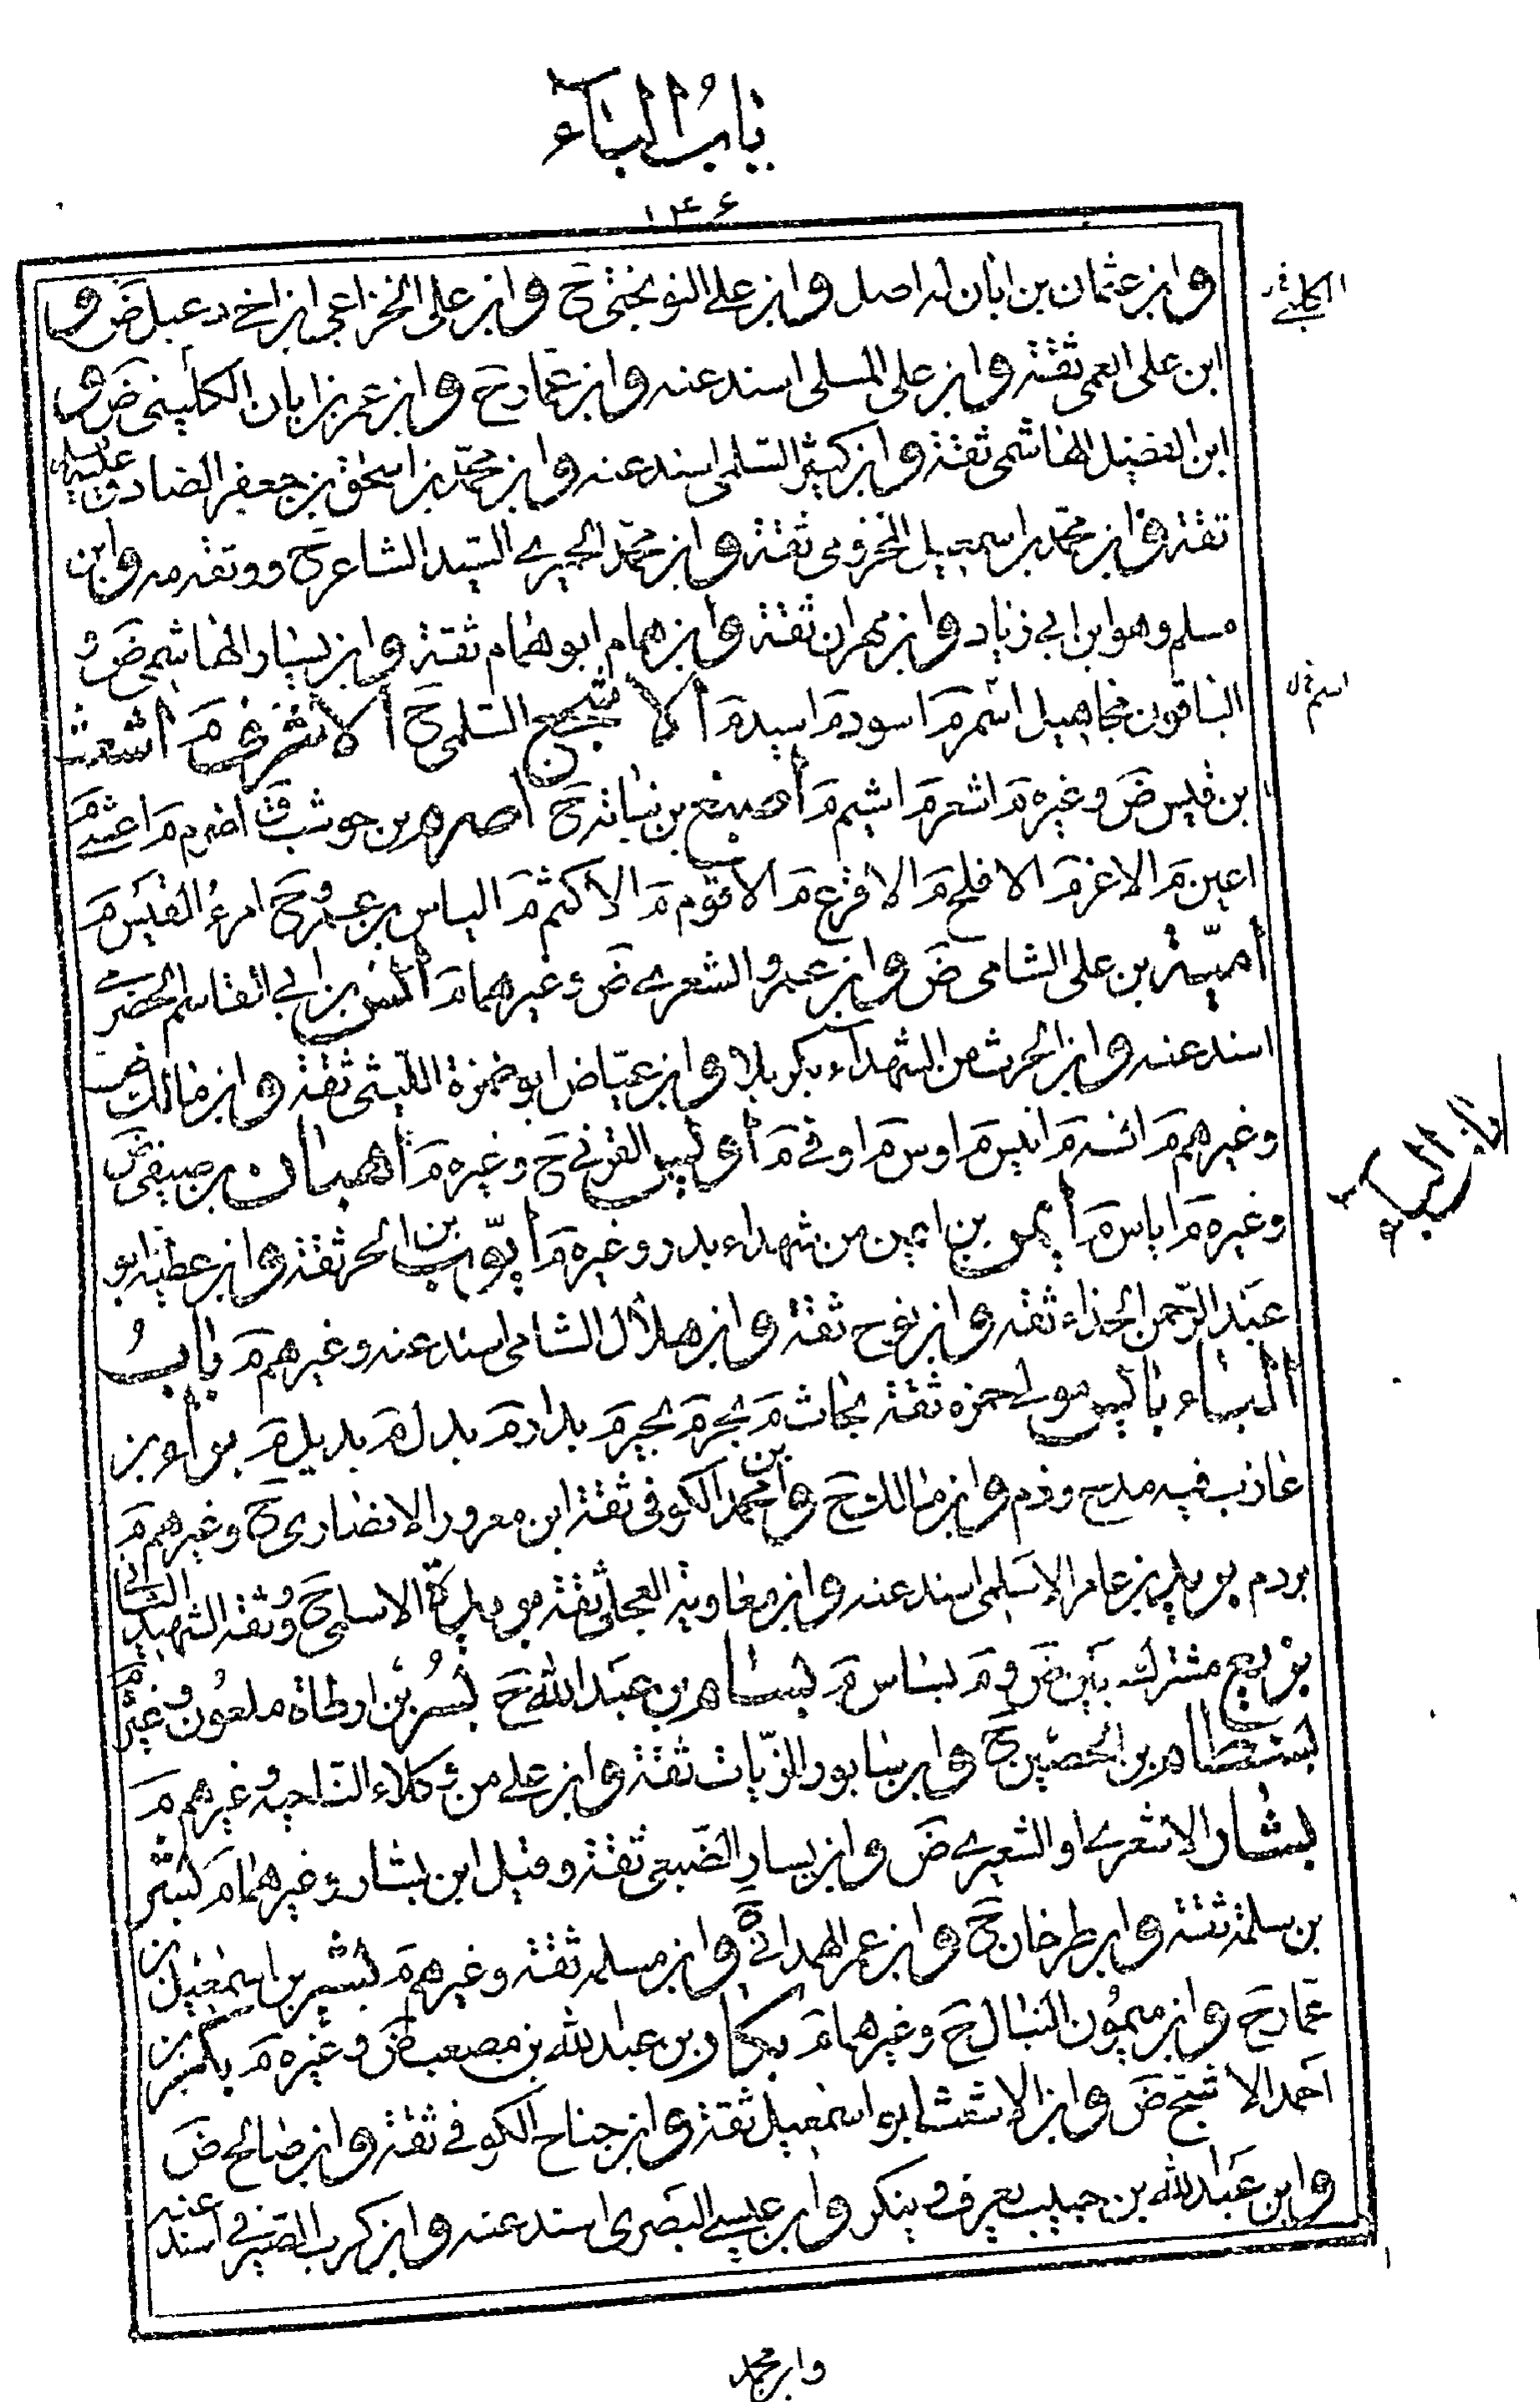 باب البآء
١٤۶
وابن عثمان بن ابان له اصل وابن علي النوبختي ح وابن علي الخزاعي ابن اخ دعبل ض و
الكلبي
ابن علي العمي ثقة وابن علي المسلي اسند عنه وابن عمار ح وابن عمر بن ابان الكلبيني ض و
ابن الفضيل الهاشمي ثقة وابن كثير السلمي اسند عنه وابن محمد بن اسحق بن جعفر الصادق عليه السلم
ثقة وابن محمد بن اسمعيل المخزومي ثقة وابن محمد الحميري السيد الشاعر ح ووثقه مه وابن
مسلم وهو ابن ابي زياد وابن مهران ثقة وابن همام ابو همام ثقة وابن يسار الهاشمي ض و
الباقون مجاهيل اسمر م اسود م اسيد م الاشجع السلمي ح الاشرف م اشعث
اسم
بن قيس ض وغيره م اشعر م اشيم م اصبغ بن نباته ح اصرم بن حوشب ق اضرم م اعشى م
اعين م الاغر م الافلح م الاقرع م الاقوم م الاكثم م الياس بن عمرو ح امرء القيس م
أميّة بن علي الشامي ض وابن عمرو الشعري ض وغيرهما م انس بن ابي القاسم الحضرمي
اسند عنه وابن الحرث من الشهدآء بكربلا وابن عياض ابو ضمزة الليثي ثقة وابن مالك ض
وغيرهم م انسه م انيس م اوس م اوفى م أويس القرني ح وغيره م أهبان بن صيفي ض
باب البآء
وغيره م اياس م أيمن بن ايمن من شهداء بدر وغيره م أيّوب بن الحر ثقة وابن عطية ابو
عبد الرحمن الحذاء ثقه وابن نوح ثقة وابن هلال الشامي اسند عنه وغيرهم م باب
البآء بائس مولى حمزه ثقة بحاث م بحر م بجير م بدر م بدل م بديل م براء بن
عازب فيه مدح وذم وابن مالك ح وابن محمد الكوفي ثقة ابن معرور الانصاري ح وغيرهم م
بردم بريد بن عامر الاسلمي اسند عنه وابن معاوية العجلي ثقة بريدة الاسلمي ح وثقه الشهيد الثاني
بزيع مشترك بين ض و م بساس م بسام بن عبد الله ح بسر بن ارطاة ملعون وغيره م
بسطام بن الحصين ح وابن سابور الزيات ثقة وابن علي من وكلاء الناحيه وغيرهم م
بشار الاشعري او الشعيري ض وابن يسار الضبعي ثقة وقيل ابن بشار وغيرهما م بشر
بن سلمة ثقة وابن طرخان ح وابن عمر الهمداني ح وابن مسلمه ثقة وغيرهم م بشير بن اسمعيل بن
عمار ح وابن ميمون النبال ح وغيرهما م بكار بن عبد الله بن مصعب ض وغيره م بكر بن
احمد الاشج ض وابن الاشعث ابو اسمعيل ثقة وابن جناح الكوفي ثقة وابن صالح ض
وابن عبد الله بن حبيب يعرف وينكر وابن عيسى البصري اسند عنه وابن كرب الصيرفي اسند عنه
وابن محمد